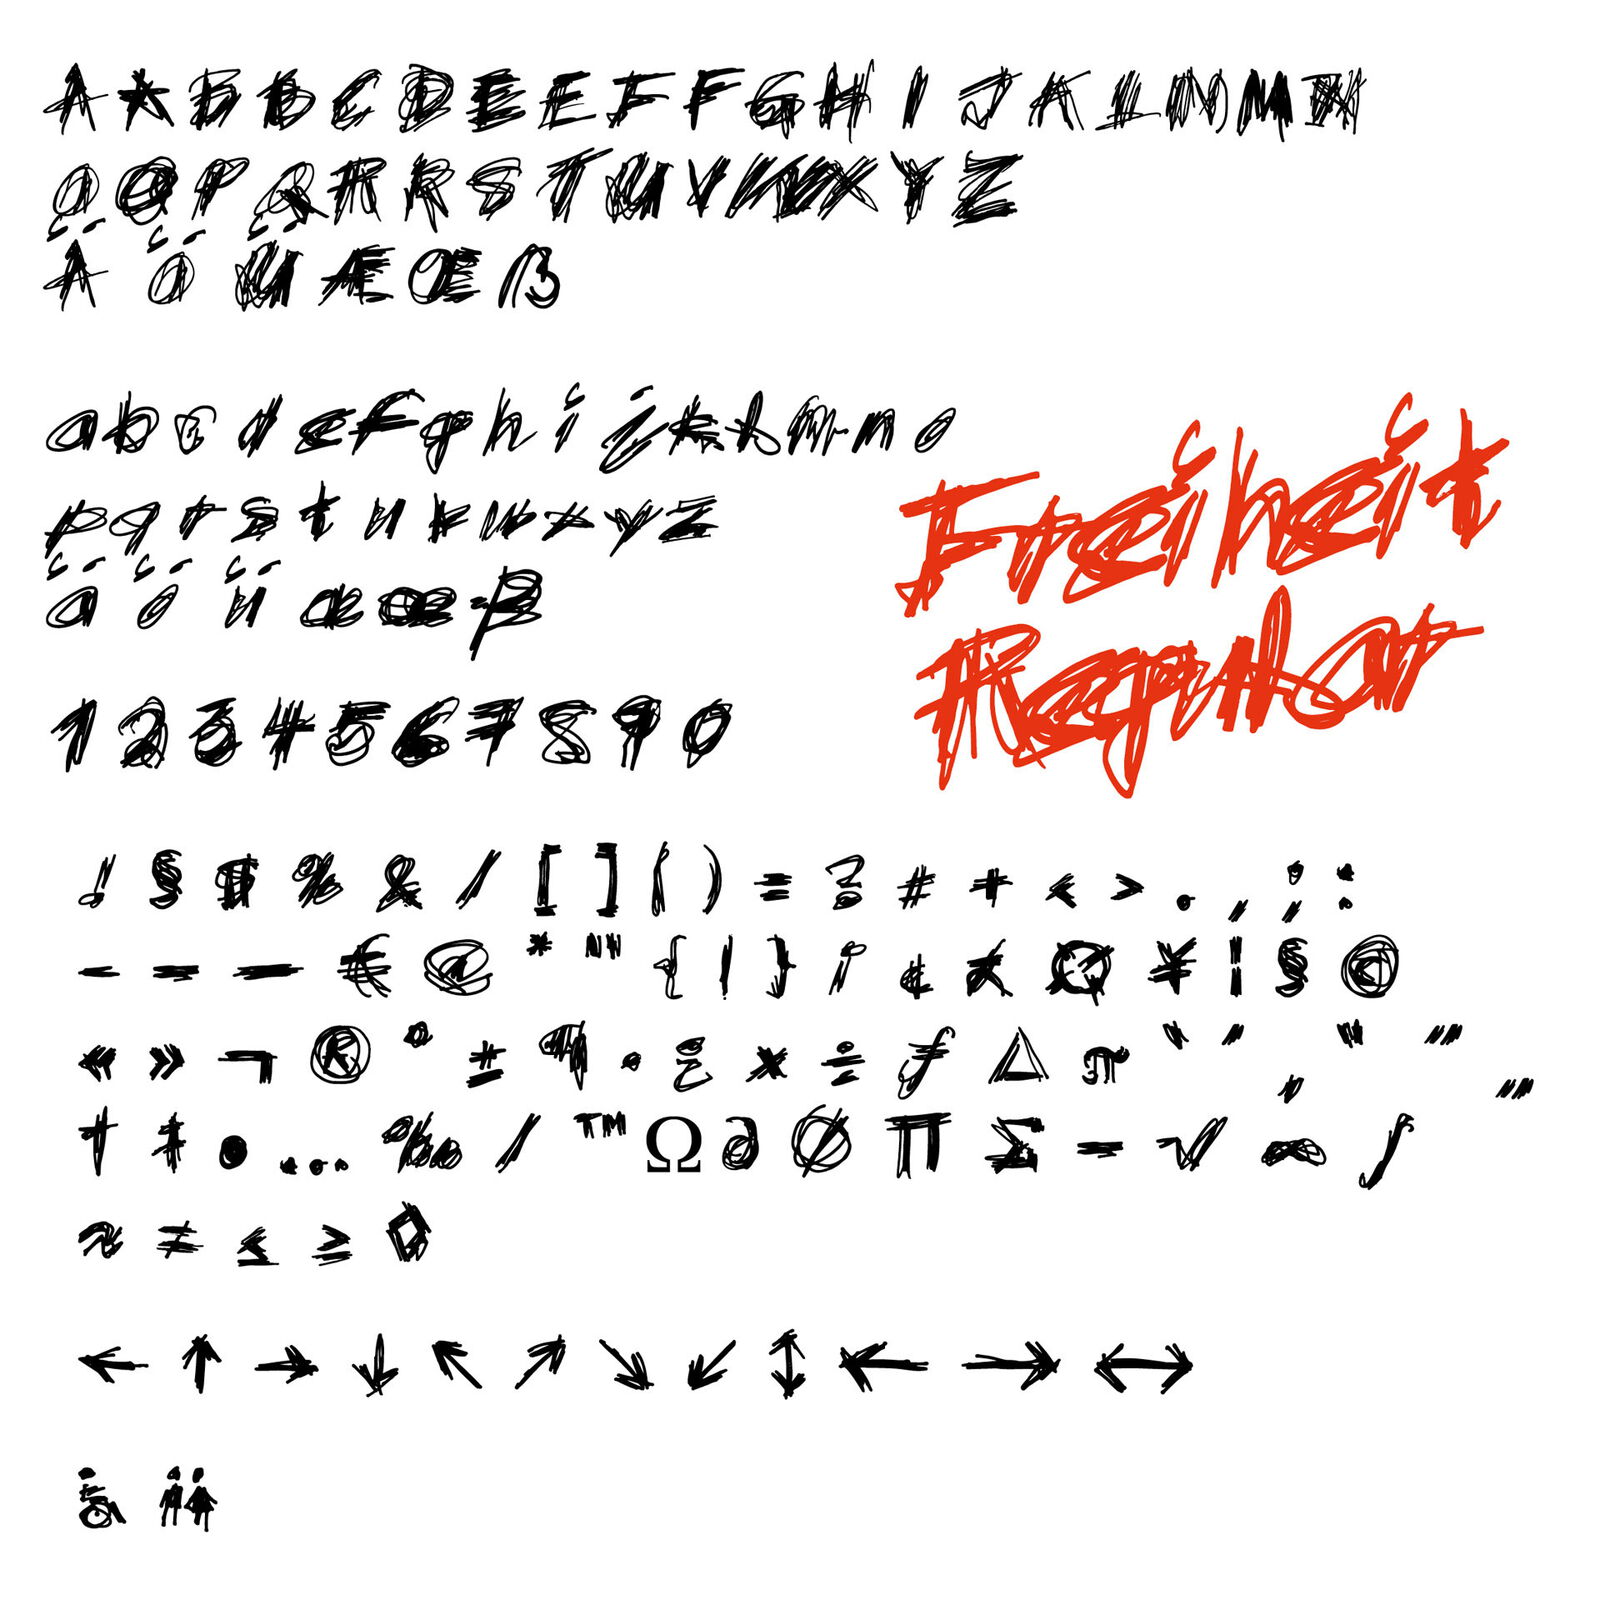 A A B B C D E E F F G H I J K L N M M N
O O P Q R R S T U V W X Y Z
Ä Ö Ü Æ Œ ß
a b c d e f g h i j k l m n o
p q r s t u v w x y z
ä ö ü æ œ ß
Freiheit
Regular
1 2 3 4 5 6 7 8 9 0
! § $ % & / [ ] ( ) = ? # + < > . , ; :
- – — € @ * " { | } ¡ ¢ ¥ ¦ § ©
« » ¬ ® ° ± ¶ · ¿ × ÷ ƒ ∆ π ‘ ’ ‚ “ ” „
† ‡ • … ‰ ⁄ ™ Ω ∂ Ø ∏ ∑ − √ ∞ ∫
≈ ≠ ≤ ≥ ◊
← ↑ → ↓ ↖ ↗ ↘ ↙ ↕ ← → ↔